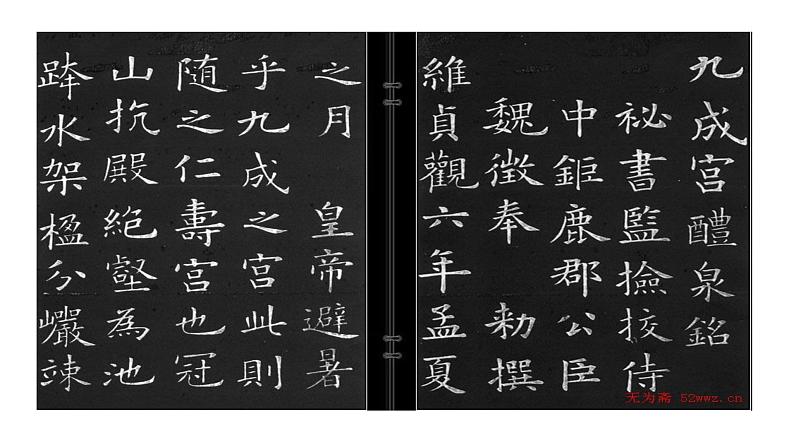 九成宫醴泉銘
祕書監撿挍侍
中鉅鹿郡公臣
魏徵奉 勑撰
維貞觀六年孟夏
之月 皇帝避暑
乎九成之宫此則
随之仁壽宫也冠
山抗殿絶壑為池
跨水架楹分巗竦
无为斋 52wwz.cn